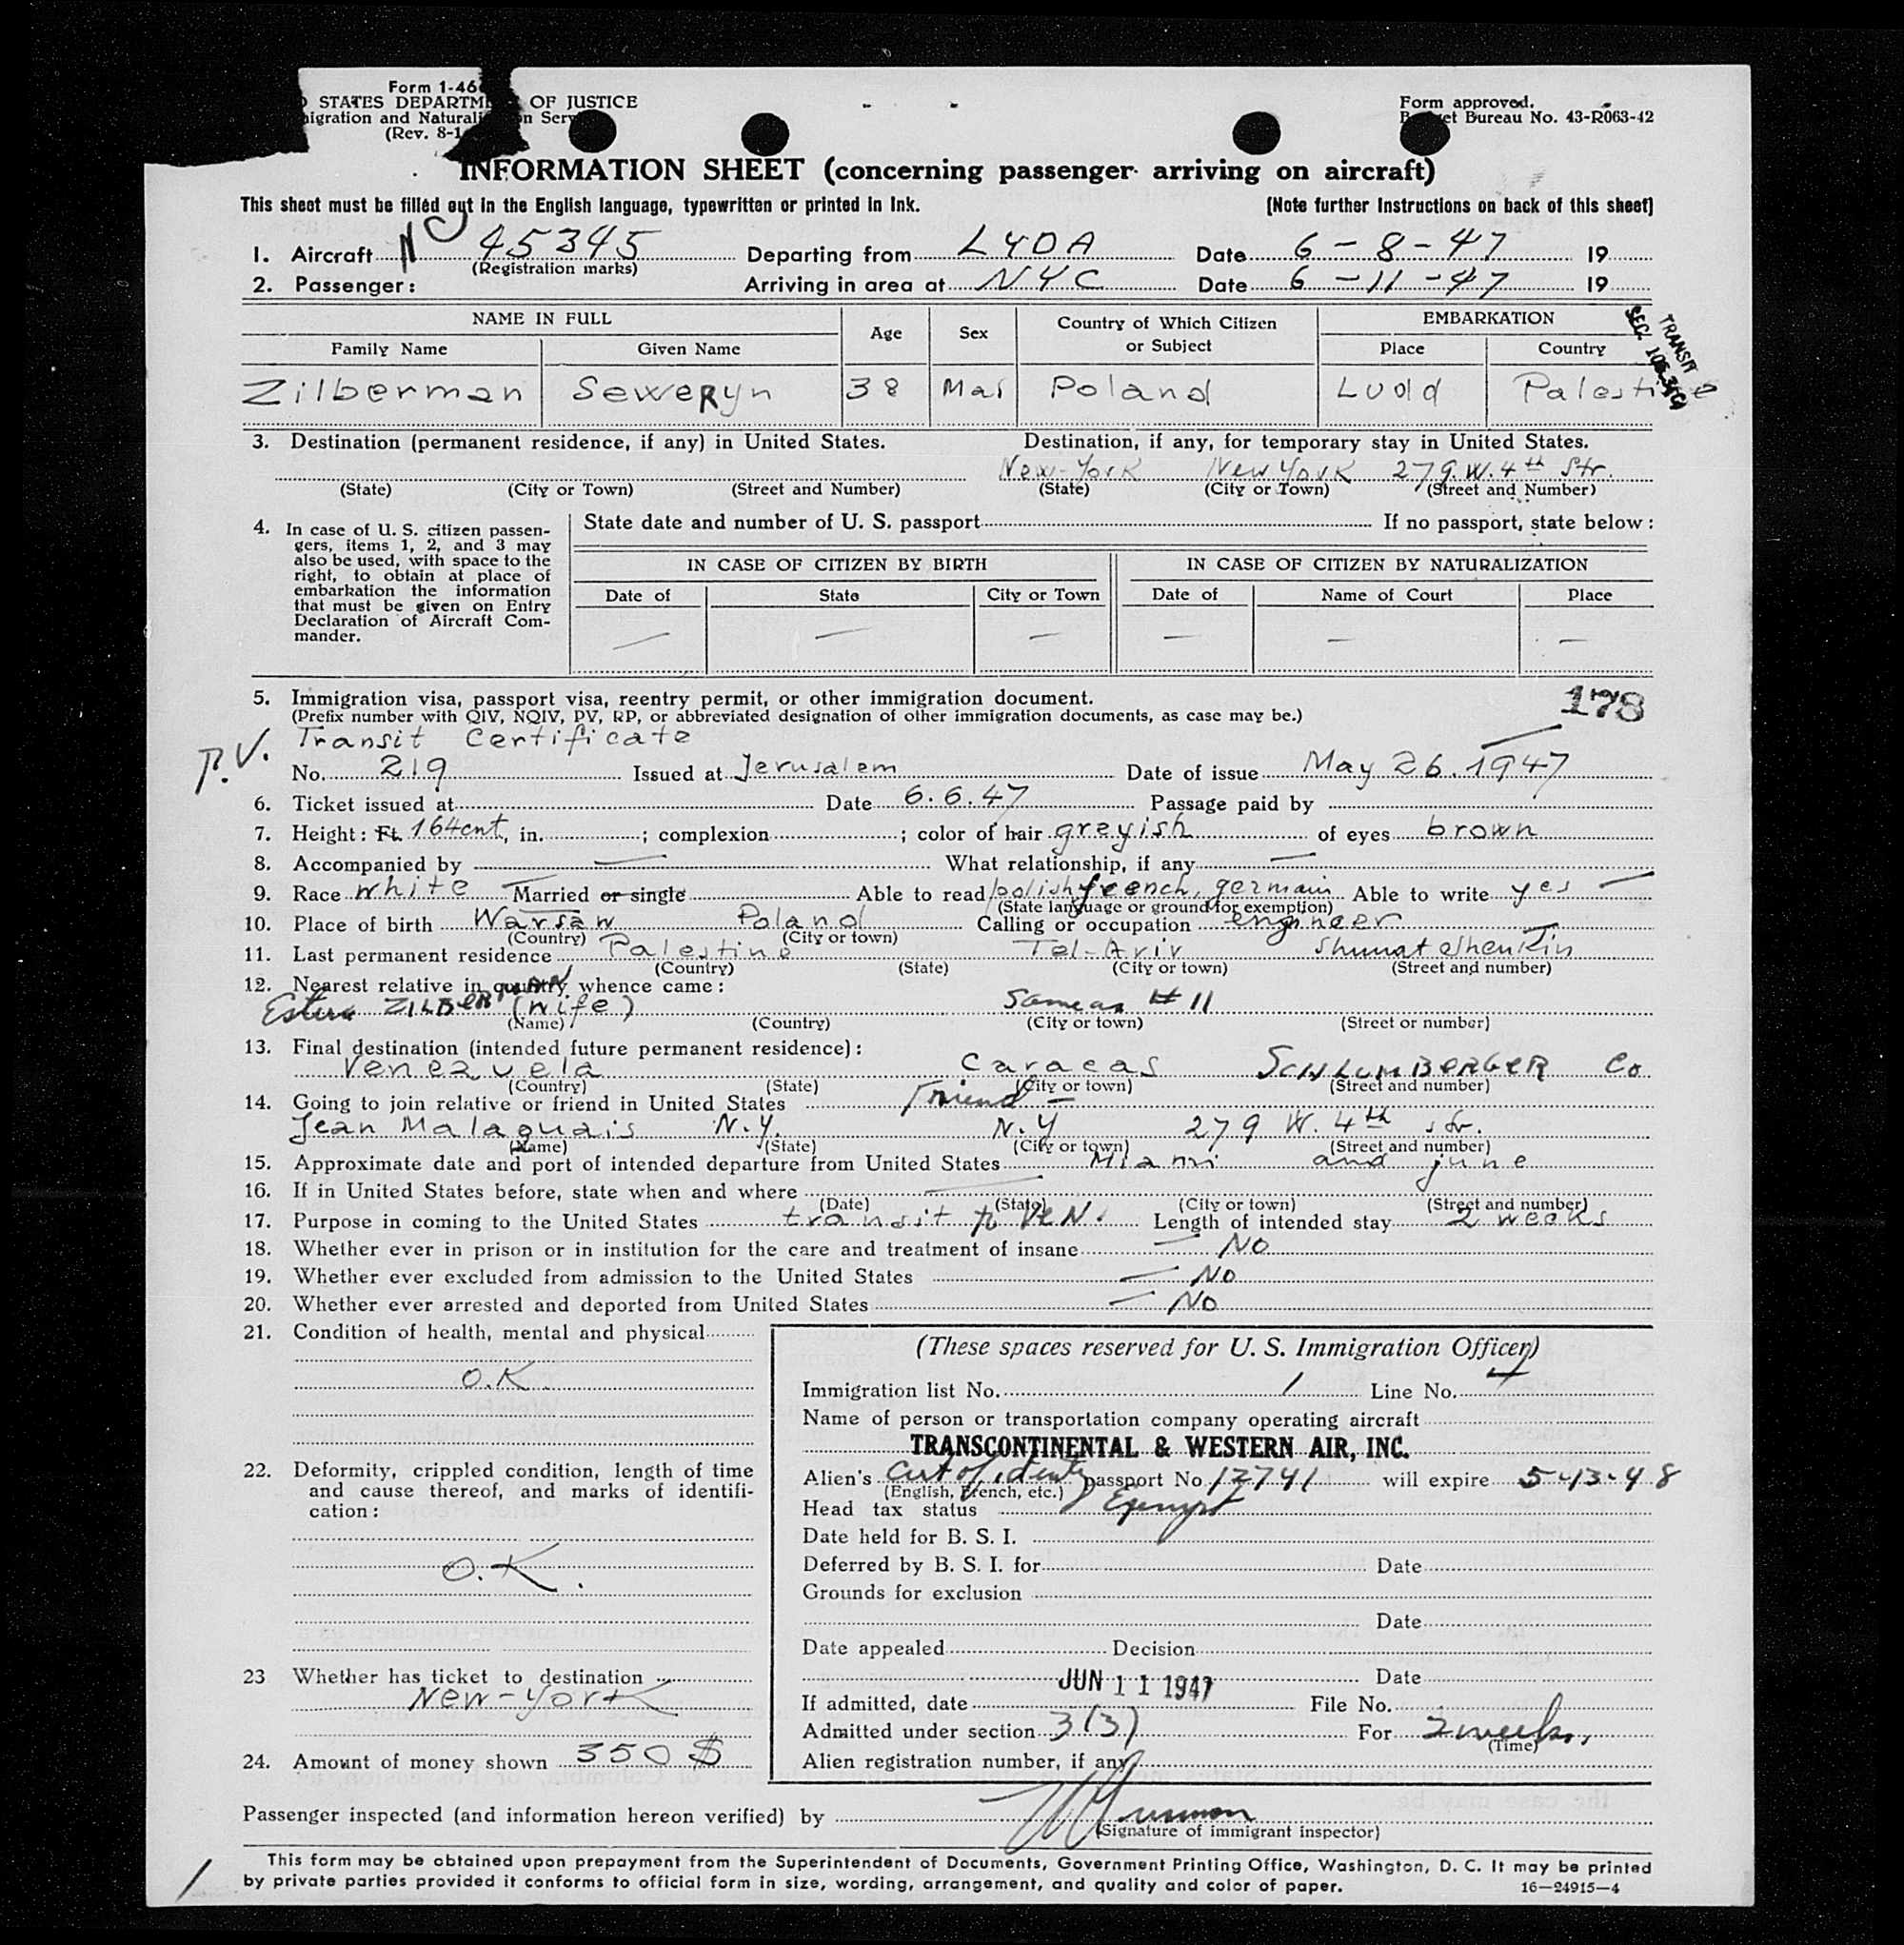 Form 1-46
STATES DEPARTM OF JUSTICE
migration and Naturali n Serv
(Rev. 8-1
Form approved.
B et Bureau No. 43-R063-42
INFORMATION SHEET (concerning passenger arriving on aircraft)
This sheet must be filled out in the English language, typewritten or printed in ink. (Note further instructions on back of this sheet)
1. Aircraft NC 45345 Departing from LYDA Date 6-8-47 19
(Registration marks)
2. Passenger: Arriving in area at NYC Date 6-11-47 19
NAME IN FULL Age Sex Country of Which Citizen or Subject EMBARKATION
Family Name Given Name Place Country
TRANSIT
SEC.
Zilberman Seweryn 38 Mal Poland Ludd Palestine
3. Destination (permanent residence, if any) in United States. Destination, if any, for temporary stay in United States.
New-York New York 279 W. 4th Str.
(State) (City or Town) (Street and Number) (State) (City or Town) (Street and Number)
4. In case of U. S. citizen passengers, items 1, 2, and 3 may also be used, with space to the right, to obtain at place of embarkation the information that must be given on Entry Declaration of Aircraft Commander.
State date and number of U. S. passport If no passport, state below:
IN CASE OF CITIZEN BY BIRTH IN CASE OF CITIZEN BY NATURALIZATION
Date of State City or Town Date of Name of Court Place
— — — — — —
5. Immigration visa, passport visa, reentry permit, or other immigration document. 178
(Prefix number with QIV, NQIV, PV, RP, or abbreviated designation of other immigration documents, as case may be.)
P.V. Transit Certificate
No. 219 Issued at Jerusalem Date of issue May 26. 1947
6. Ticket issued at Date 6.6.47 Passage paid by
7. Height: Ft. 164cnt, in. ; complexion ; color of hair greyish of eyes brown
8. Accompanied by — What relationship, if any —
9. Race white Married or single Able to read polish french, germain Able to write yes —
(State language or ground for exemption)
10. Place of birth Warsaw Poland Calling or occupation engineer
(Country) (City or town)
11. Last permanent residence Palestine Tel-Aviv Shunat Shenkin
(Country) (State) (City or town) (Street and number)
12. Nearest relative in country whence came:
Estera ZILBERMAN (wife) Same as # 11
(Name) (Country) (City or town) (Street or number)
13. Final destination (intended future permanent residence):
Venezuela Caracas SCHLUMBERGER Co
(Country) (State) (City or town) (Street and number)
14. Going to join relative or friend in United States Friend —
Jean Malaquais N.Y. N.Y 279 W. 4th str.
(Name) (State) (City or town) (Street and number)
15. Approximate date and port of intended departure from United States Miami and june
16. If in United States before, state when and where —
(Date) (State) (City or town) (Street and number)
17. Purpose in coming to the United States transit to VEN. Length of intended stay 2 weeks
18. Whether ever in prison or in institution for the care and treatment of insane — No
19. Whether ever excluded from admission to the United States — No
20. Whether ever arrested and deported from United States — No
21. Condition of health, mental and physical
O.K.
22. Deformity, crippled condition, length of time and cause thereof, and marks of identification:
O.K.
23 Whether has ticket to destination
New-York
24. Amount of money shown 350 $
(These spaces reserved for U. S. Immigration Officer)
Immigration list No. 1 Line No. 4
Name of person or transportation company operating aircraft
TRANSCONTINENTAL & WESTERN AIR, INC.
Alien's Cert of identy passport No 12741 will expire 5-13-48
(English, French, etc.)
Head tax status Exempt
Date held for B. S. I.
Deferred by B. S. I. for Date
Grounds for exclusion
Date
Date appealed Decision
Date
JUN 11 1947
If admitted, date File No.
Admitted under section 3(3) For 2 weeks.
(Time)
Alien registration number, if any
Passenger inspected (and information hereon verified) by
(Signature of immigrant inspector)
This form may be obtained upon prepayment from the Superintendent of Documents, Government Printing Office, Washington, D. C. It may be printed
by private parties provided it conforms to official form in size, wording, arrangement, and quality and color of paper. 16—24915-4